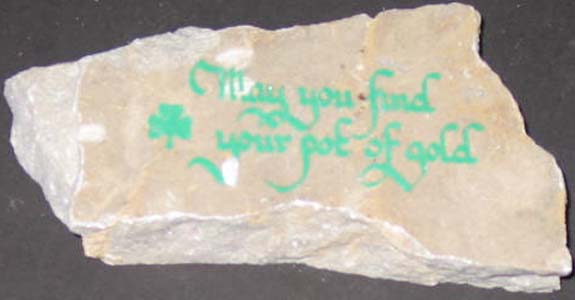 May you find
your pot of gold